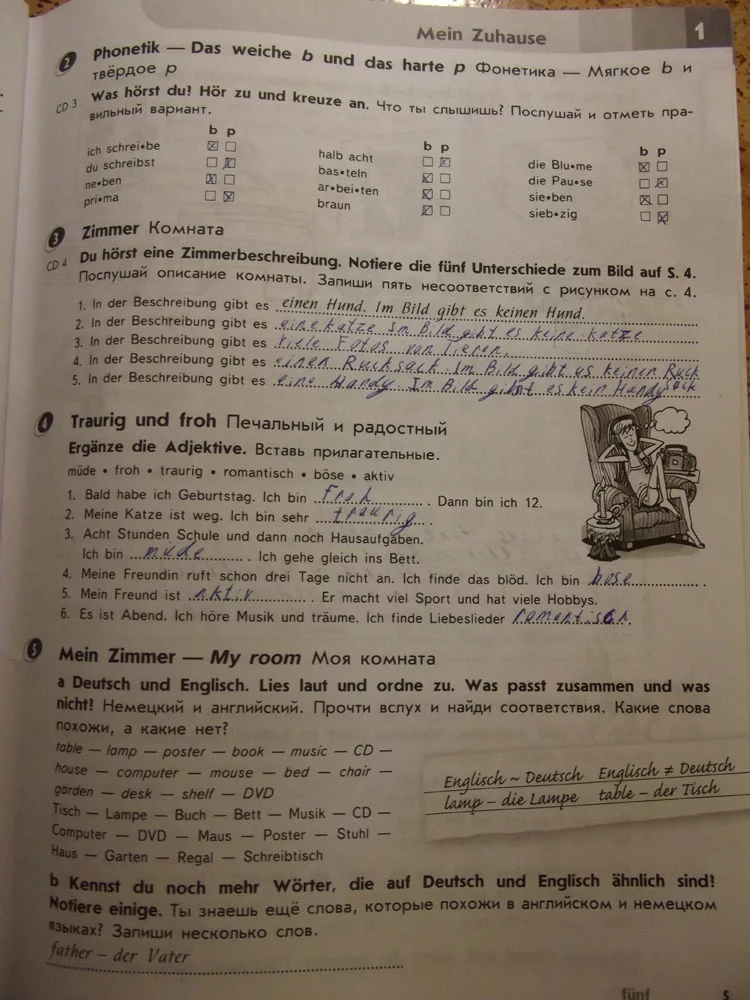 Mein Zuhause 1
2 Phonetik — Das weiche b und das harte p Фонетика — Мягкое b и
твёрдое p
CD 3 Was hörst du? Hör zu und kreuze an. Что ты слышишь? Послушай и отметь пра-
вильный вариант.
b p b p b p
ich schrei•be halb acht die Blu•me
du schreibst bas•teln die Pau•se
ne•ben ar•bei•ten sie•ben
pri•ma braun sieb•zig
3 Zimmer Комната
CD 4 Du hörst eine Zimmerbeschreibung. Notiere die fünf Unterschiede zum Bild auf S. 4.
Послушай описание комнаты. Запиши пять несоответствий с рисунком на с. 4.
1. In der Beschreibung gibt es einen Hund. Im Bild gibt es keinen Hund.
2. In der Beschreibung gibt es eine katze Im Bild gibt es keine katze
3. In der Beschreibung gibt es viele Fotos von Tieren.
4. In der Beschreibung gibt es einen Rucksack Im Bild gibt es keinen Ruck
sack
5. In der Beschreibung gibt es eine Handy. Im Bild gibt es kein Handy
4 Traurig und froh Печальный и радостный
Ergänze die Adjektive. Вставь прилагательные.
müde • froh • traurig • romantisch • böse • aktiv
1. Bald habe ich Geburtstag. Ich bin froh. Dann bin ich 12.
2. Meine Katze ist weg. Ich bin sehr traurig.
3. Acht Stunden Schule und dann noch Hausaufgaben.
Ich bin mude. Ich gehe gleich ins Bett.
4. Meine Freundin ruft schon drei Tage nicht an. Ich finde das blöd. Ich bin bose.
5. Mein Freund ist aktiv. Er macht viel Sport und hat viele Hobbys.
6. Es ist Abend. Ich höre Musik und träume. Ich finde Liebeslieder romantisch.
5 Mein Zimmer — My room Моя комната
a Deutsch und Englisch. Lies laut und ordne zu. Was passt zusammen und was
nicht? Немецкий и английский. Прочти вслух и найди соответствия. Какие слова
похожи, а какие нет?
table — lamp — poster — book — music — CD —
house — computer — mouse — bed — chair —
garden — desk — shelf — DVD
Tisch — Lampe — Buch — Bett — Musik — CD —
Computer — DVD — Maus — Poster — Stuhl —
Haus — Garten — Regal — Schreibtisch
Englisch ~ Deutsch Englisch ≠ Deutsch
lamp – die Lampe table – der Tisch
b Kennst du noch mehr Wörter, die auf Deutsch und Englisch ähnlich sind?
Notiere einige. Ты знаешь ещё слова, которые похожи в английском и немецком
языках? Запиши несколько слов.
father – der Vater
fünf 5